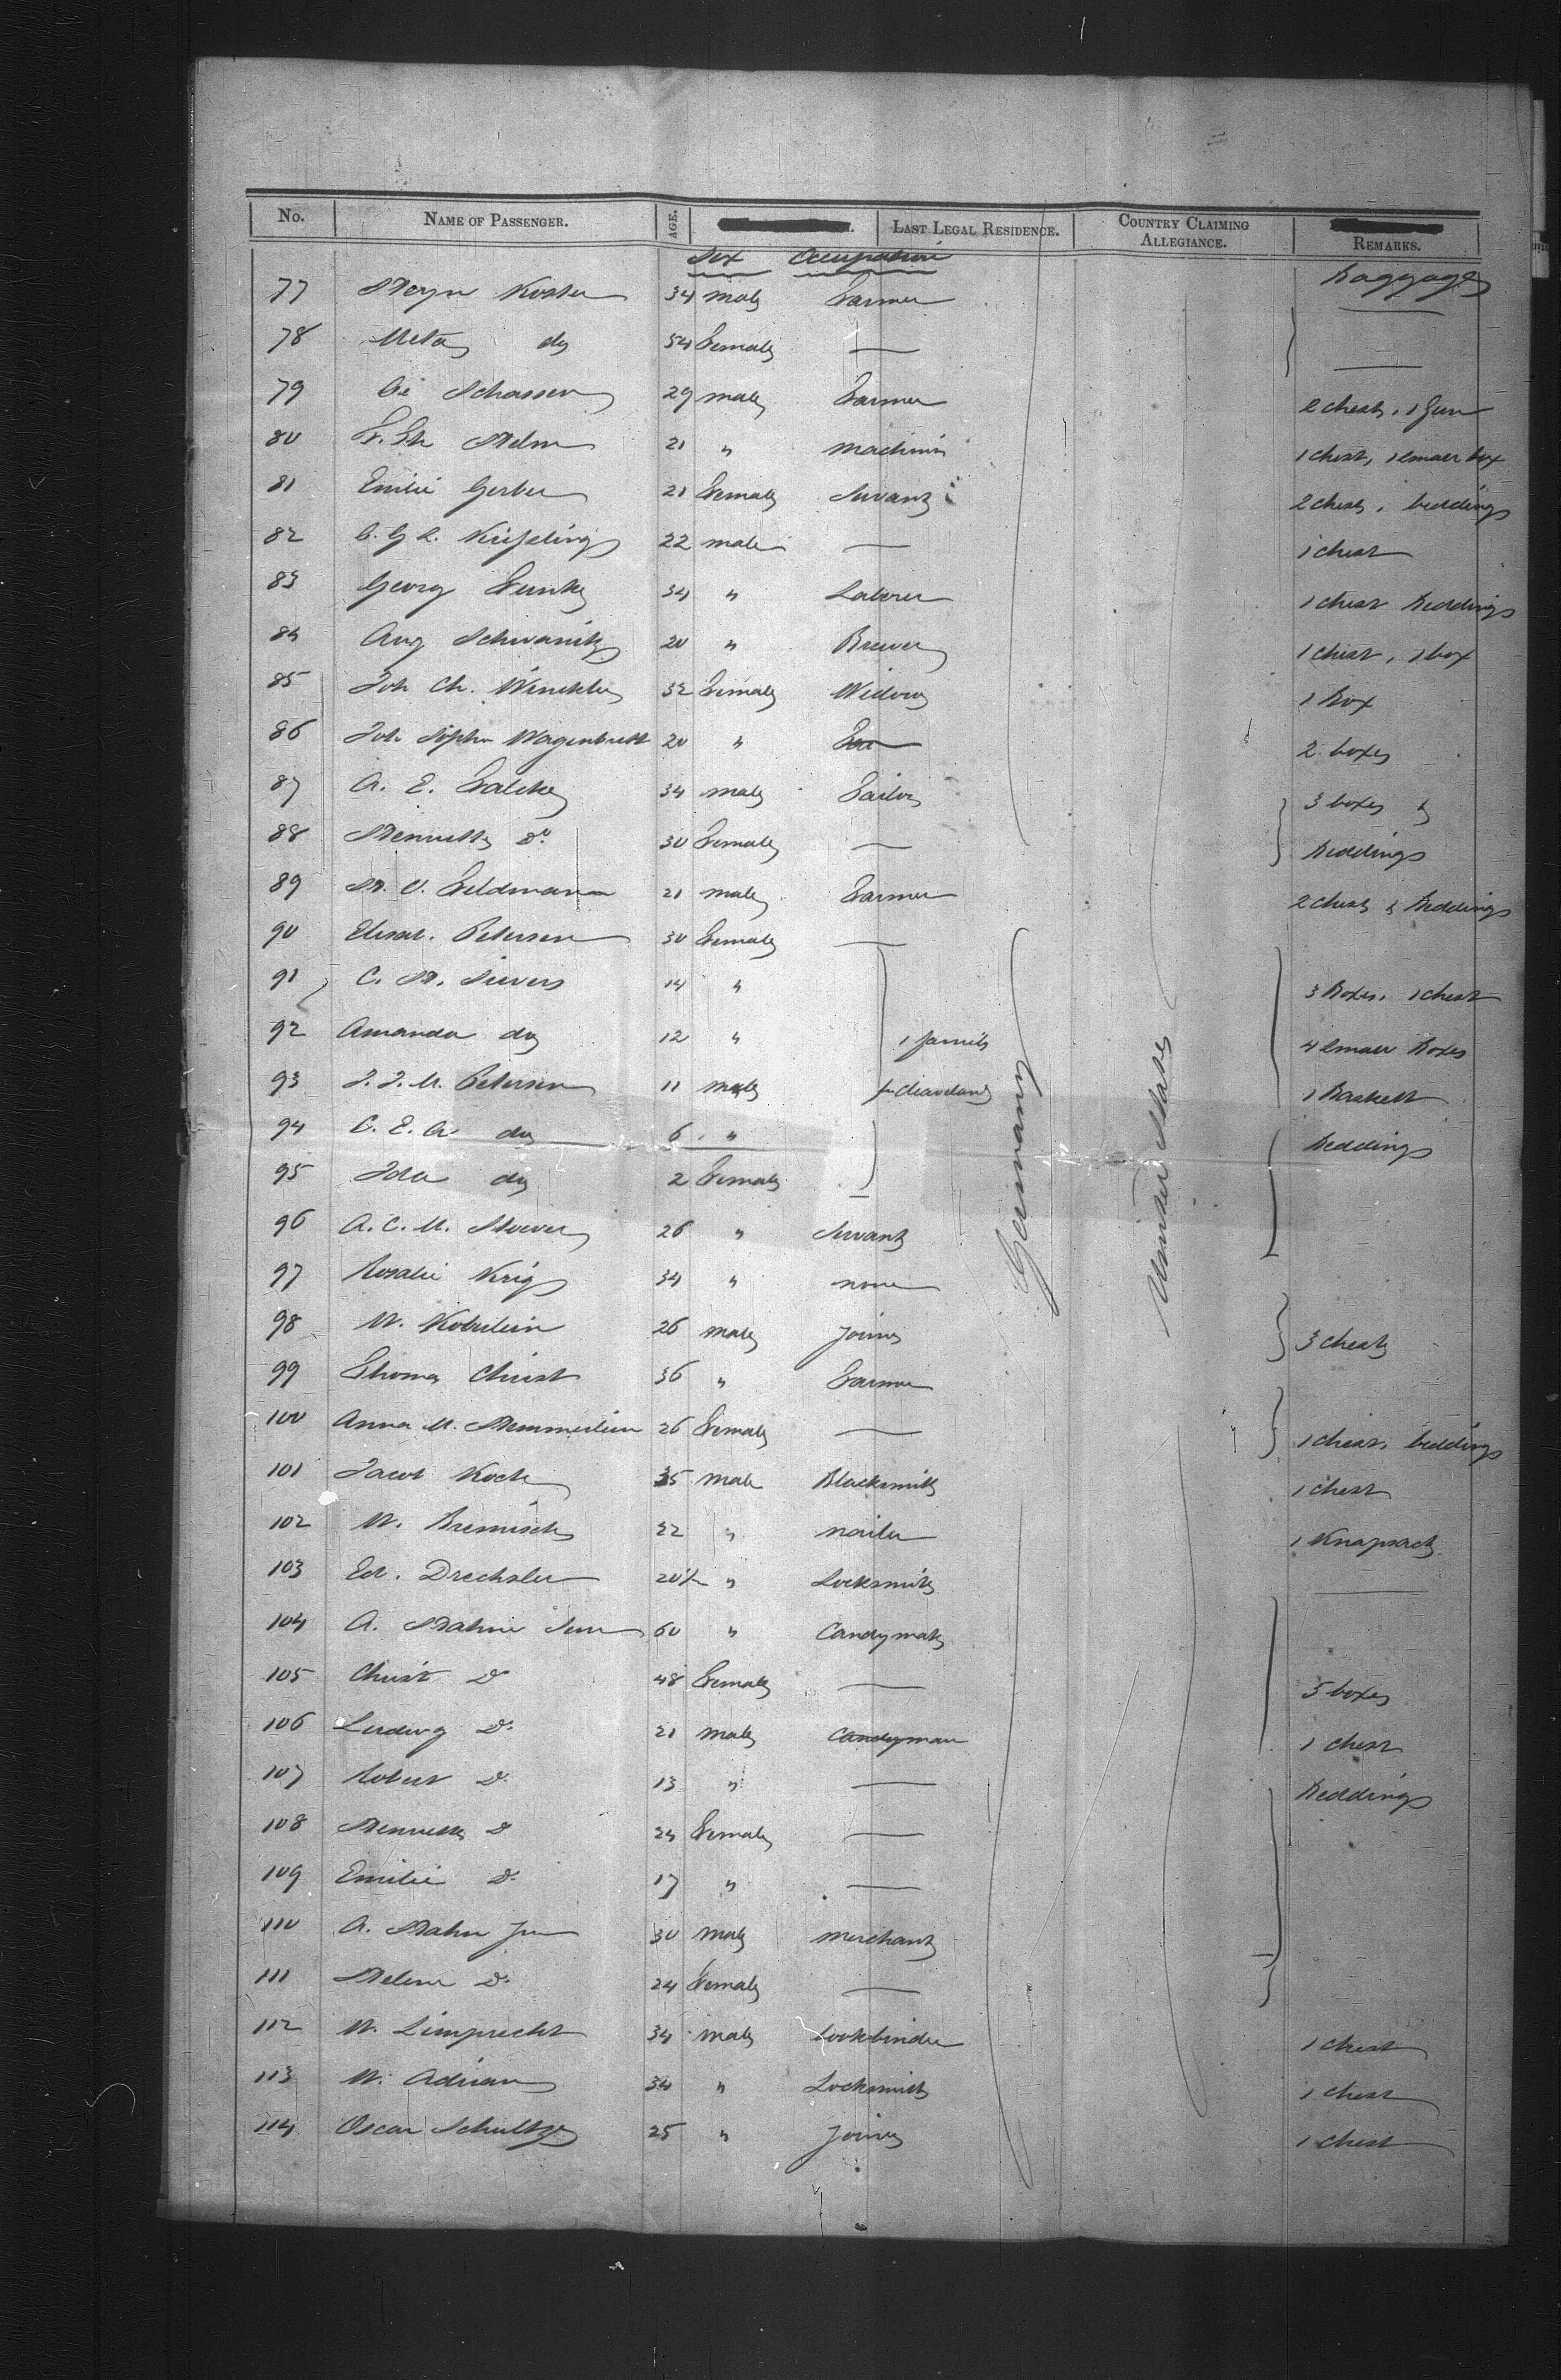 No. NAME OF PASSENGER. AGE. LAST LEGAL RESIDENCE. COUNTRY CLAIMING ALLEGIANCE. REMARKS.
Sex Occupation Baggage
77 Koster 34 male Farmer
78 Meta do 34 Female —
79 29 male Farmer 2 chests, 1 Gun
80 21 " machinist 1 chest, 1 small box
81 Emilie Gerber 21 Female Servant 2 chests, beddings
82 22 male — 1 chest
83 Georg Funke 34 " Laborer 1 chest Beddings
84 Aug Schwanitz 20 " Brewer 1 chest, 1 box
85 Joh Ch. Winckler 32 Female Widow 1 Box
86 Joh Wagenbrett 20 " 2 boxes
87 A. E. 34 male Tailor 3 boxes &
88 Henriette Do. 30 Female — Beddings
89 Feldmann 21 male Farmer 2 chests & Beddings
90 Elisab. Petersen 30 Female —
91 C. H. Sievers 14 " 3 Boxes, 1 chest
92 Amanda do 12 " 1 family 4 small Boxes
93 J. J. M. Petersen 11 male for Cleaveland 1 Baskett
94 C. E. A do 6 " Beddings
95 Ida do 2 Female
96 A. C. M. Stoever 26 " Servant
97 Rosalie Krig 34 " none
98 26 male Joiner 3 chests
99 Thomas Christ 36 " Farmer
100 Anna M. Hemmerlein 26 Female — 1 chest, beddings
101 Jacob Koch 35 male Blacksmith 1 chest
102 22 " nailer 1 Knapsack
103 Ed. Drechsler 20 ½ " Locksmith —
104 A. Hahn Sen 60 " Candymak
105 Christ D 48 Female — 5 boxes
106 Ludwig D. 21 male Candyman 1 chest
107 Robert D. 13 " — Beddings
108 Henriette D 24 Female —
109 Emilie D. 17 " —
110 A. Hahn Jun 30 male merchant
111 Helene D. 24 Female —
112 W. Limprecht 34 male bookbinder 1 chest
113 W. Adrian 34 " Locksmith 1 chest
114 Oscar Schultze 25 " Joiner 1 chest
Germany
United States